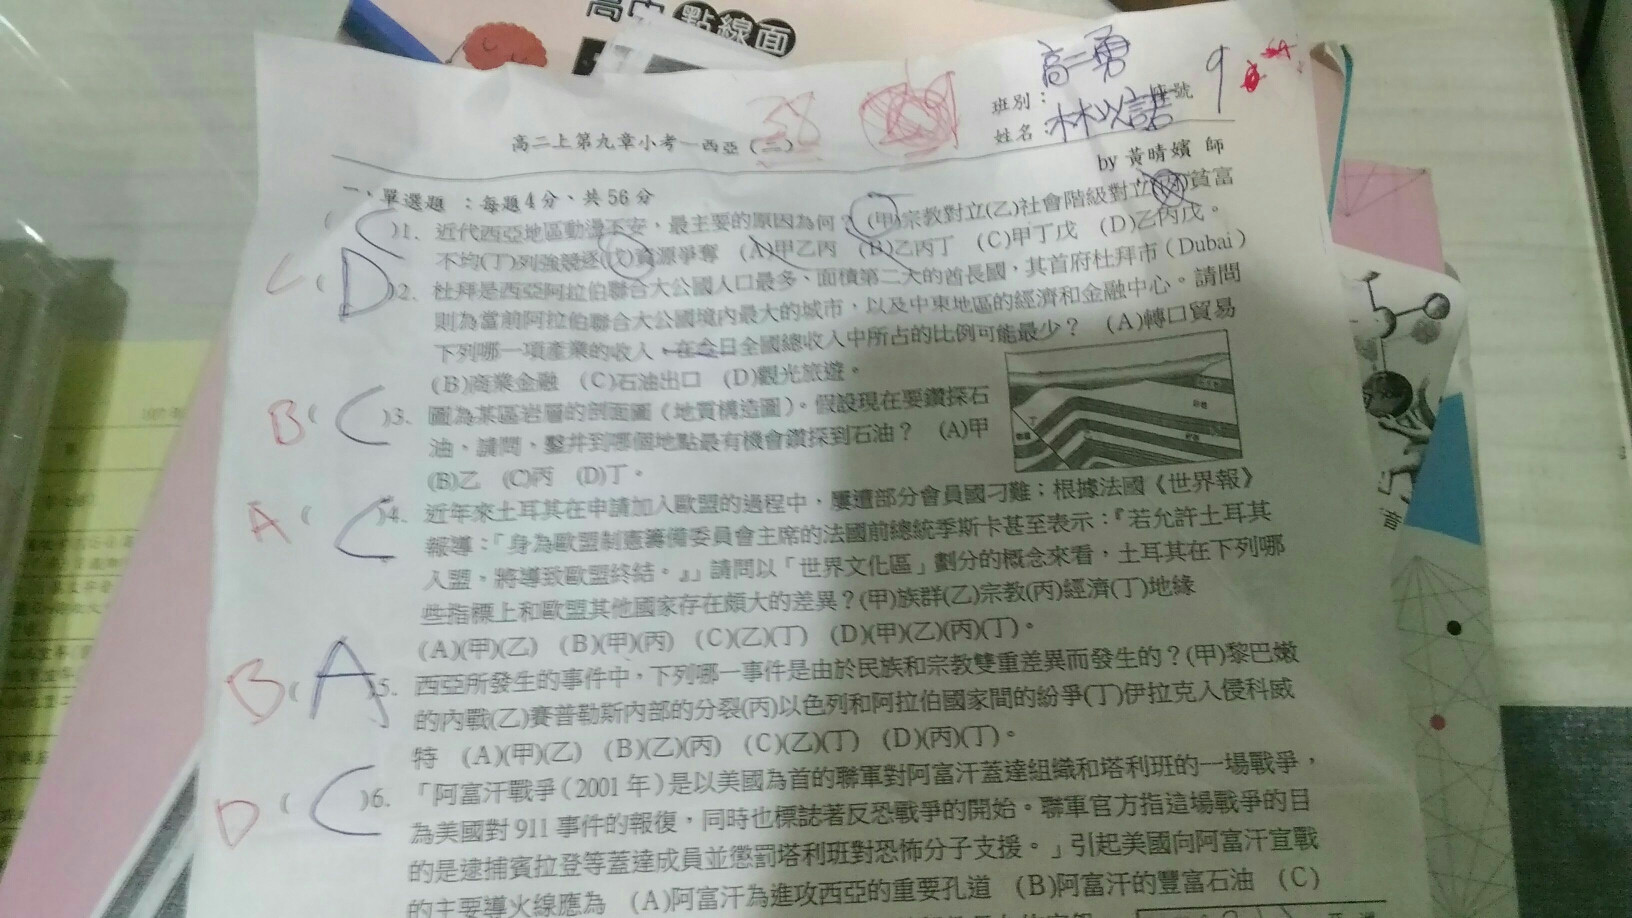 高中 點線面
38
高二勇
班別：
座號 9
姓名：林以諾
高二上第九章小考—西亞（三）
by 黃晴嬪 師
一、單選題 ：每題4分、共56分
( C )1. 近代西亞地區動盪不安，最主要的原因為何？(甲)宗教對立(乙)社會階級對立(丙)貧富
不均(丁)列強競逐(戊)資源爭奪 (A)甲乙丙 (B)乙丙丁 (C)甲丁戊 (D)乙丙戊。
C ( D )2. 杜拜是西亞阿拉伯聯合大公國人口最多、面積第二大的酋長國，其首府杜拜市（Dubai）
則為當前阿拉伯聯合大公國境內最大的城市，以及中東地區的經濟和金融中心。請問
下列哪一項產業的收入，在今日全國總收入中所占的比例可能最少？ (A)轉口貿易
(B)商業金融 (C)石油出口 (D)觀光旅遊。
B ( C )3. 圖為某區岩層的剖面圖（地質構造圖）。假設現在要鑽探石
油，請問，鑿井到哪個地點最有機會鑽探到石油？ (A)甲
(B)乙 (C)丙 (D)丁。
丁
A ( C )4. 近年來土耳其在申請加入歐盟的過程中，屢遭部分會員國刁難；根據法國《世界報》
報導：「身為歐盟制憲籌備委員會主席的法國前總統季斯卡甚至表示：『若允許土耳其
入盟，將導致歐盟終結。』」請問以「世界文化區」劃分的概念來看，土耳其在下列哪
些指標上和歐盟其他國家存在頗大的差異？(甲)族群(乙)宗教(丙)經濟(丁)地緣
(A)(甲)(乙) (B)(甲)(丙) (C)(乙)(丁) (D)(甲)(乙)(丙)(丁)。
B ( A )5. 西亞所發生的事件中，下列哪一事件是由於民族和宗教雙重差異而發生的？(甲)黎巴嫩
的內戰(乙)賽普勒斯內部的分裂(丙)以色列和阿拉伯國家間的紛爭(丁)伊拉克入侵科威
特 (A)(甲)(乙) (B)(乙)(丙) (C)(乙)(丁) (D)(丙)(丁)。
D ( C )6. 「阿富汗戰爭（2001 年）是以美國為首的聯軍對阿富汗蓋達組織和塔利班的一場戰爭，
為美國對 911 事件的報復，同時也標誌著反恐戰爭的開始。聯軍官方指這場戰爭的目
的是逮捕賓拉登等蓋達成員並懲罰塔利班對恐怖分子支援。」引起美國向阿富汗宣戰
的主要導火線應為 (A)阿富汗為進攻西亞的重要孔道 (B)阿富汗的豐富石油 (C)
音